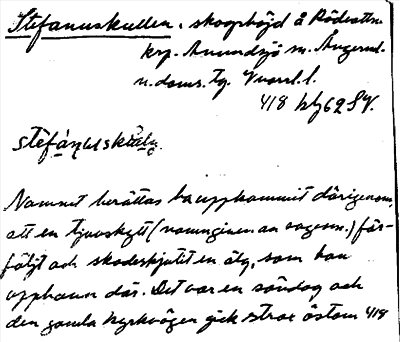 Stefanuskullen, skogshöjd å Rödvattn
krp. Anundsjö sn. Ångerml.
n. doms. tg. Vnorrl. l.
418 htg 62 SV.
Namnet berättas ha uppkommit därigenom,
att en tjuvskytt (namngiven av sagesm.) för-
följt och skadeskjutit en älg, som han
upphann där. Det var en söndag och
den gamla kyrkvägen gick strax östom 418